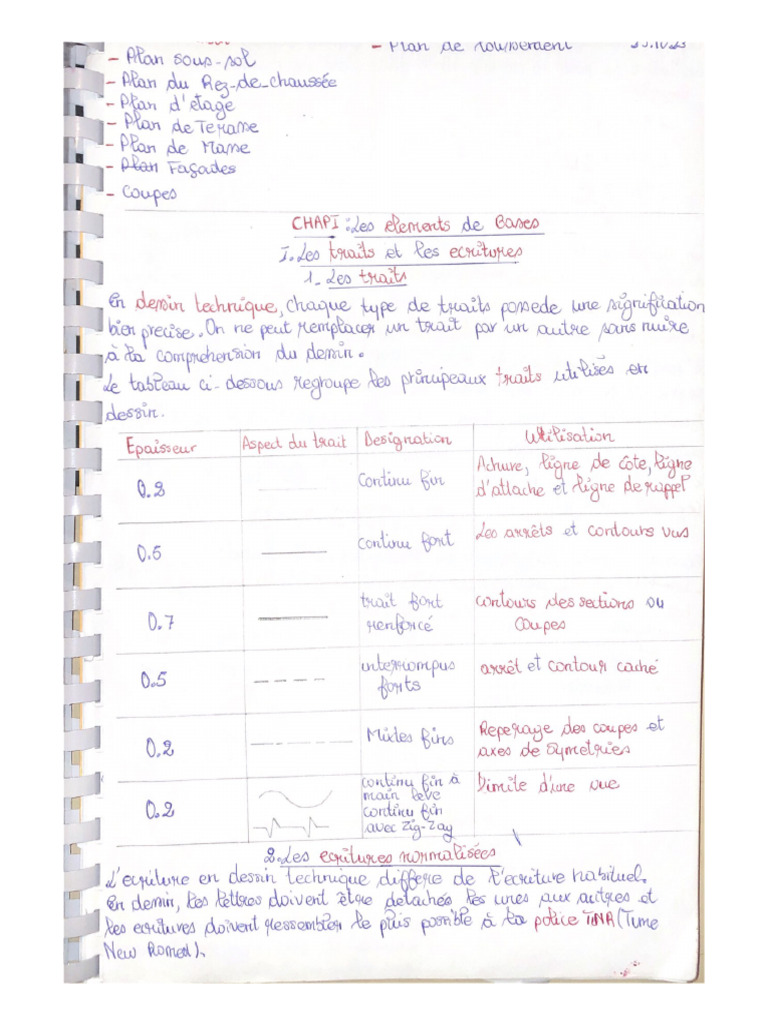 - Plan de soubement
- Plan sous-sol
- Plan du Rez-de-chaussée
- Plan d'etage
- Plan de Terasse
- Plan de Masse
- Plan Façades
- Coupes
CHAPI : Les elements de Bases
I. Les traits et les ecritures
1- Les traits
En dessin technique, chaque type de traits possede une signification
bien precise. On ne peut remplacer un trait par un autre sans nuire
à la comprehension du dessin.
Le tableau ci-dessous regroupe les principeaux traits utilisés en
dessin.
Epaisseur Aspect du trait Designation Utilisation
0.2 Continu fin Achure, ligne de cote, ligne
d'attache et ligne de rappel
0.5 continu fort Les arrêts et contours vus
0.7 trait fort renforcé contours des sections ou
coupes
0.5 interrompus forts arrêt et contour caché
0.2 Mixtes fins Reperage des coupes et
axes de Symetries
0.2 continu fin à
main levé
continu fin
avec Zig-Zag Limite d'une vue
2. Les ecritures normalisées
L'ecriture en dessin technique differe de l'ecriture habituel.
En dessin, les lettres doivent être detachés les unes aux autres et
les ecritures doivent ressembler le plus possible à la police TNR (Time
New Romed).